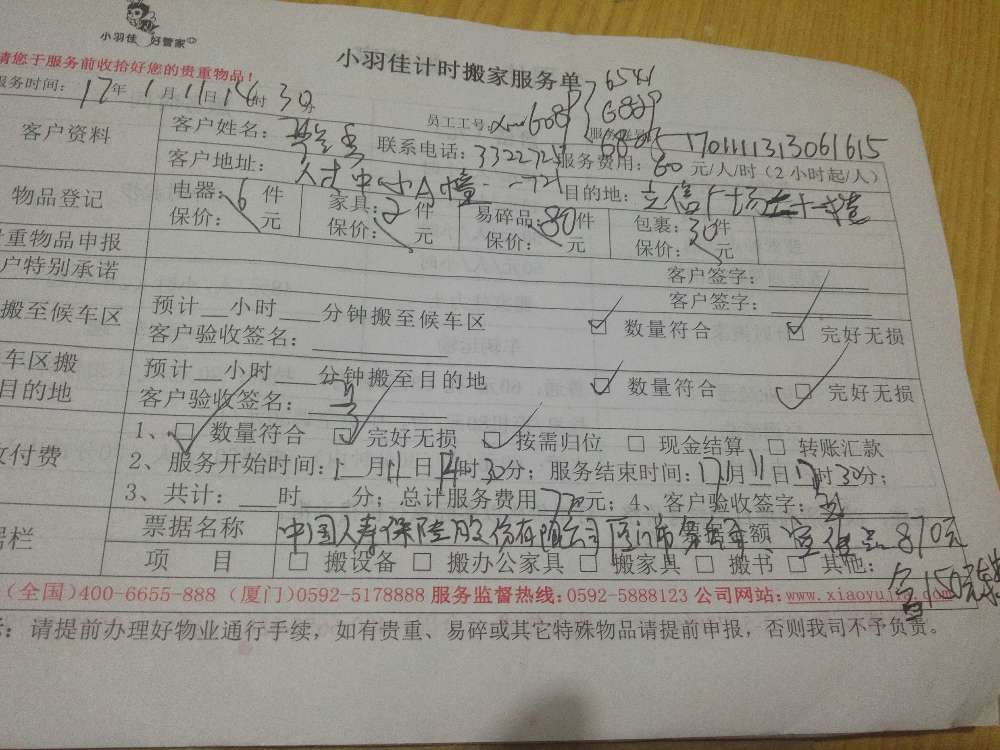 小羽佳 好管家
小羽佳计时搬家服务单
请您于服务前收拾好您的贵重物品!
服务时间: 17年 1月 11日 14时 30分
员工工号: 608
6809
6805
170111313061615
客户资料
客户姓名:
联系电话: 3322721
服务费用: 60 元/人/时 (2 小时起/人)
客户地址:
目的地:
物品登记
电器: 6 件 家具: 2 件 易碎品: 80 件 包裹: 30 件
保价: 元 保价: 元 保价: 元 保价: 元
贵重物品申报
客户签字:
客户特别承诺
客户签字:
搬至候车区
预计 小时 分钟搬至候车区
☑ 数量符合 ☑ 完好无损
客户验收签名:
车区搬
目的地
预计 小时 分钟搬至目的地
☑ 数量符合 ☑ 完好无损
客户验收签名:
收付费
1、☑ 数量符合 ☑ 完好无损 ☑ 按需归位 □ 现金结算 □ 转账汇款
2、服务开始时间: 1 月 11 日 14 时 30 分; 服务结束时间: 17 1 月 11 日 17 时 30 分;
3、共计: 时 分; 总计服务费用 720 元; 4、客户验收签字:
据栏
票据名称 中国人寿保险股份有限公司厦门市 票据金额 870元
项 目 □ 搬设备 □ 搬办公家具 □ 搬家具 □ 搬书 □ 其他:
含150元
(全国)400-6655-888 (厦门)0592-5178888 服务监督热线:0592-5888123 公司网站:www.xiaoyujia.com
示: 请提前办理好物业通行手续, 如有贵重、易碎或其它特殊物品请提前申报, 否则我司不予负责。